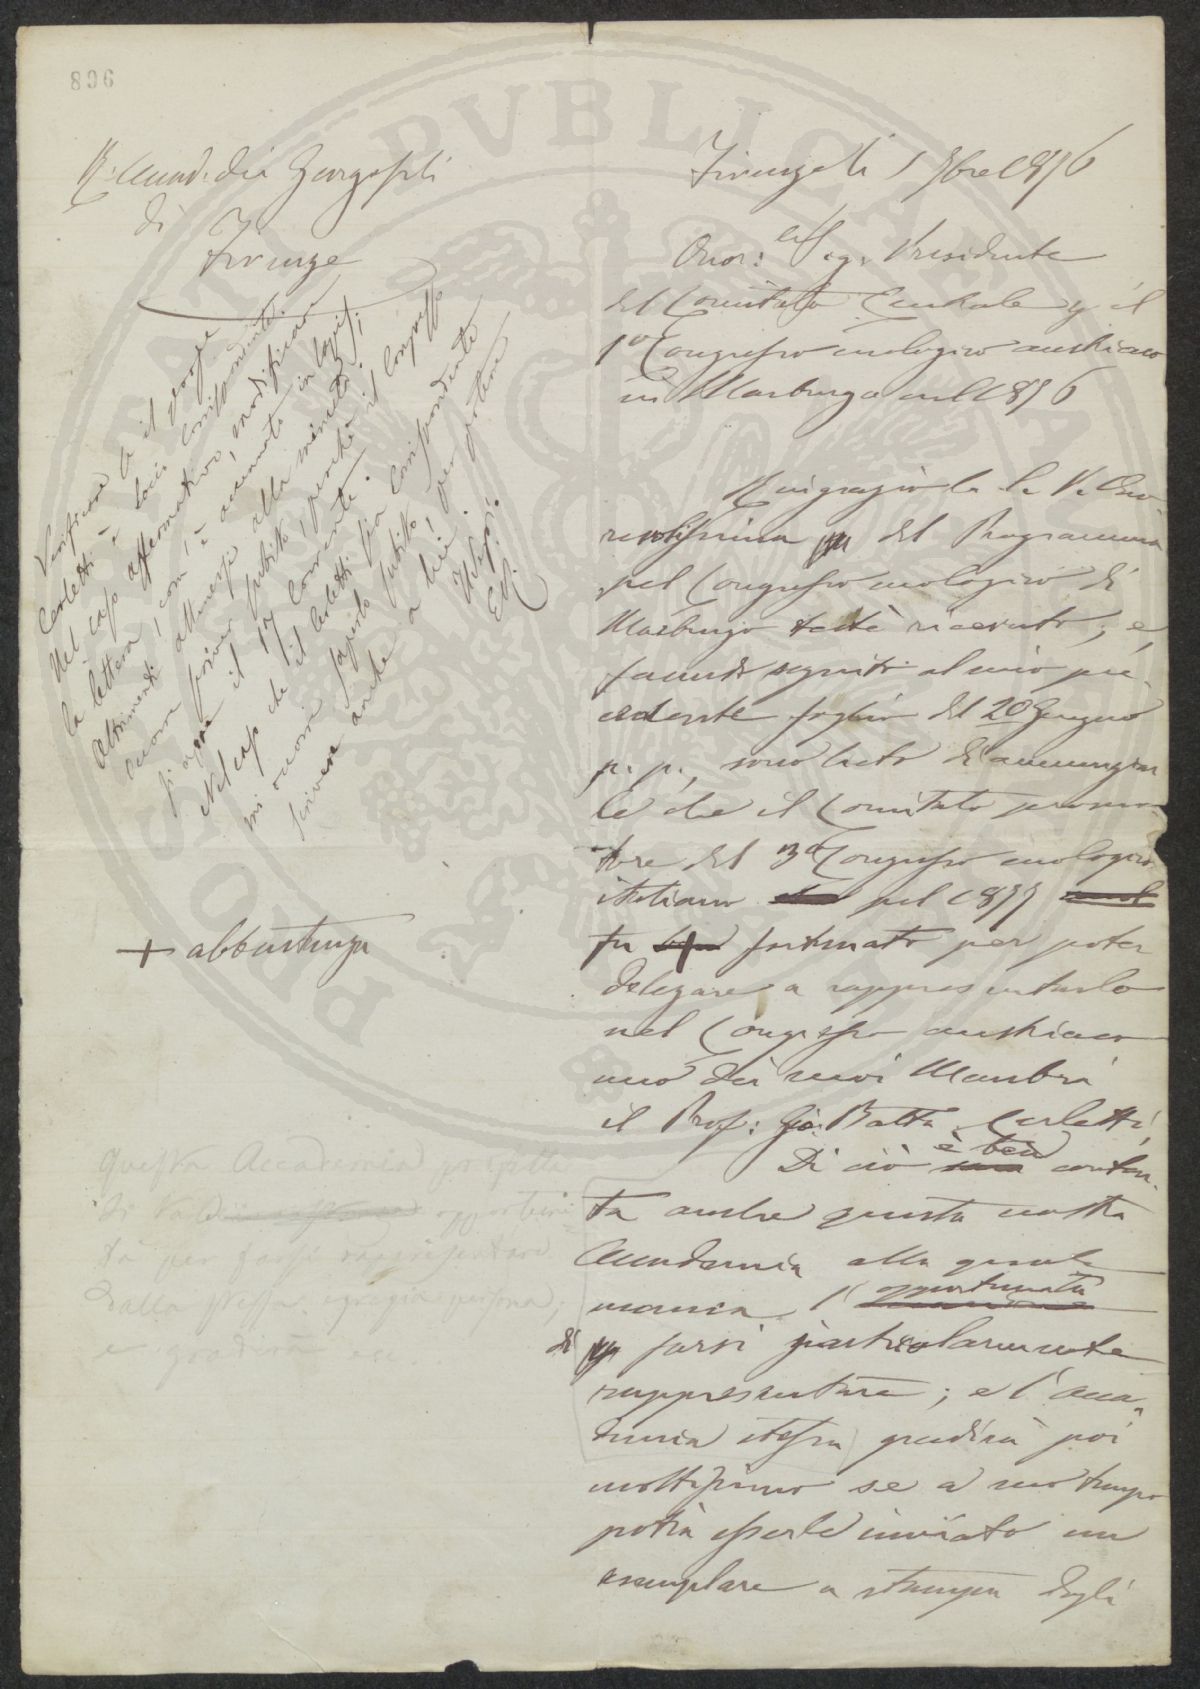 896
R. Accad: dei Georgofili
di
Firenze
Firenze li 1 7bre 1876
Onor: Sig. Presidente
del Comitato Centrale p il
1º Congresso enologico austriaco
in Marburgo nel 1876
Verificare se il prof.re
Carletti è socio corrispondente.
Nel caso affermativo, modificare
la lettera, com'è accennato in lapis;
altrimenti attenersi alla minuta;
il 17 corrente.
Nel caso che il Carletti sia corrispondente
mi occorre saperlo subito, per potere
scrivere anche a lui.
Ringrazio la S. V. Ono-
revolissima del Programma
pel Congresso enologico di
Marburgo testè ricevuto; e,
facendo seguito al mio pre-
cedente foglio del 20 Giugno
p. p., sono lieto di annunziar
le che il Comitato promo-
tore del 3º Congresso enologico
italiano pel 1877
fu + fortunato per poter
delegare a rappresentarlo
nel Congresso austriaco
uno dei suoi Membri
il Prof: Gio. Batta Carletti,
Di ciò è ben conten-
ta anche questa nostra
Accademia alla quale
manca l'opportunità
di farsi particolarmente
rappresentare; e l'Acca-
demia stessa gradirà poi
moltissimo se a suo tempo
potrà esserle inviato un
esemplare a stampa degli
+ abbastanza
Questa Accademia profitta
di opportuni
tà per farsi rappresentare
dalla stessa egregia persona;
e gradirà ecc.
PVBLICA